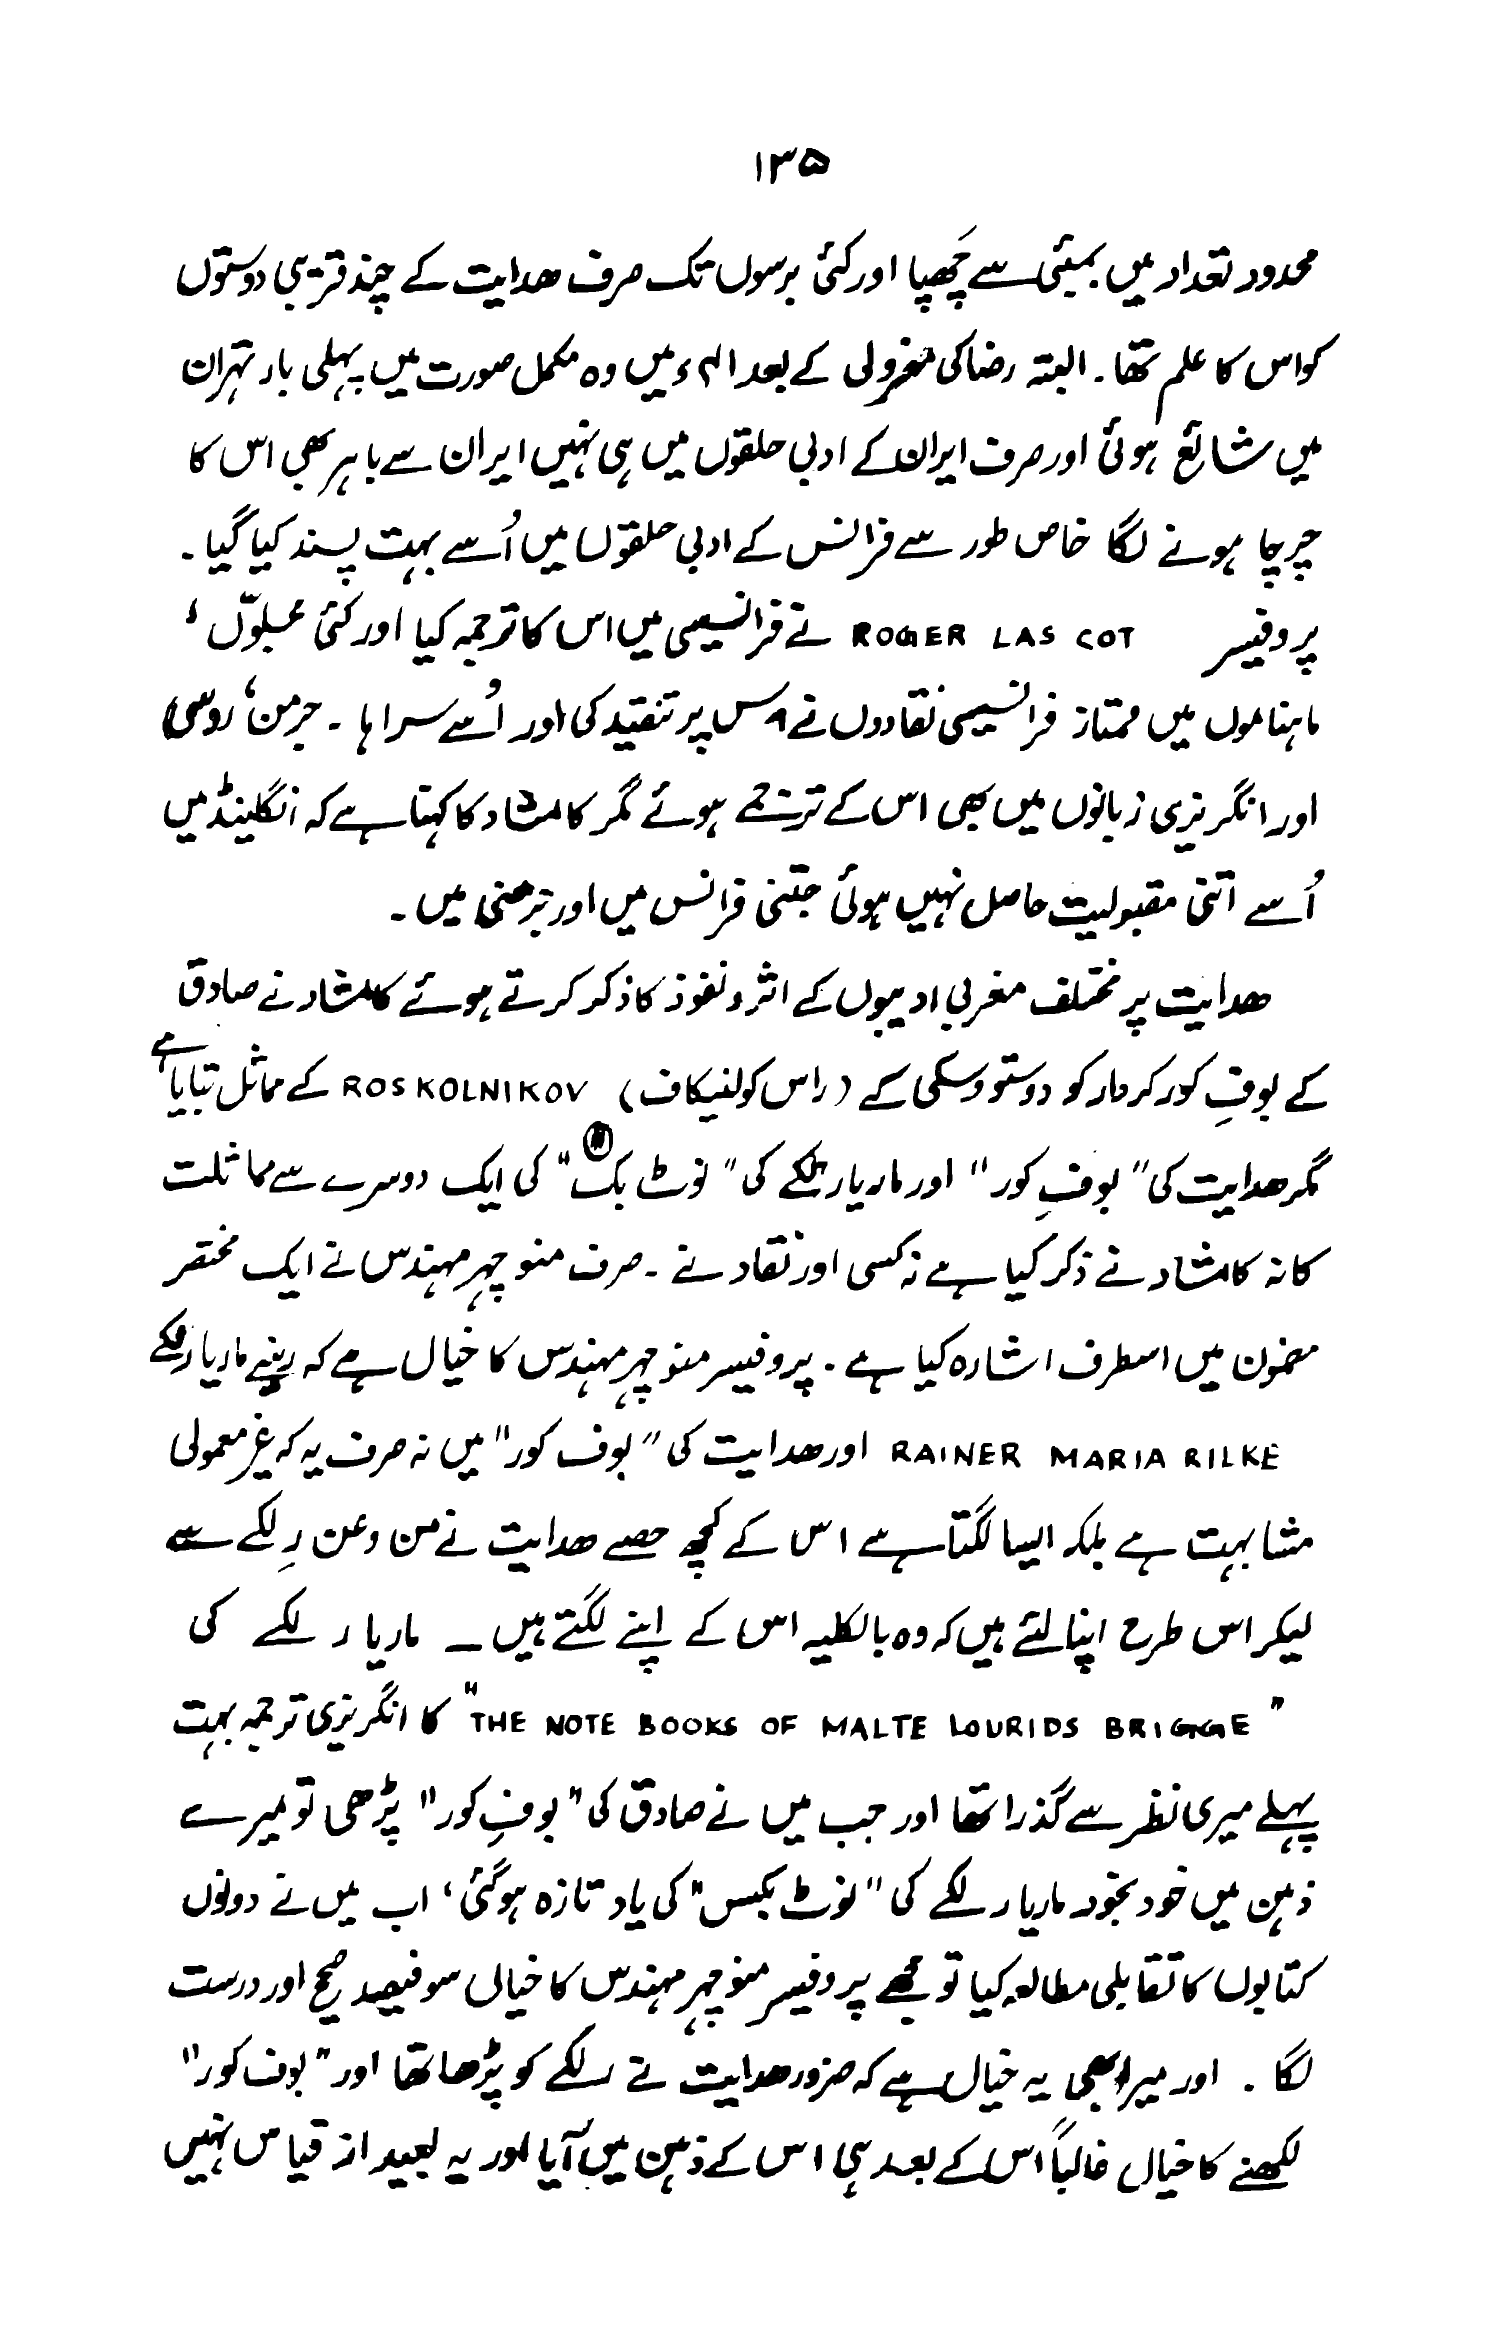 ۱۳۵
محدود تعداد میں بمبئی سے چَھپا اور کئی برسوں تک صرف ھدایت کے چند قریبی دوستوں
کو اس کا علم تھا۔ البتہ رضا کی معزولی کے بعد ۴۱ء میں وہ مکمل صورت میں پہلی بار تہران
میں شائع ہوئی اور صرف ایران کے ادبی حلقوں میں ہی نہیں ایران سے باہر بھی اس کا
چرچا ہونے لگا خاص طور سے فرانس کے ادبی حلقوں میں اُسے بہت پسند کیا گیا۔
پروفیسر ROGER LAS COT نے فرانسیسی میں اس کا ترجمہ کیا اور کئی مجلوّں ،
ماہناموں میں ممتاز فرانسیسی نقادوں نے اس پر تنقید کی اور اُسے سراہا ۔ جرمن، روسی
اور انگریزی زبانوں میں بھی اس کے ترجمے ہوئے مگر کامشاد کا کہنا ہے کہ انگلینڈ میں
اُسے اتنی مقبولیت حاصل نہیں ہوئی جتنی فرانس میں اور جرمنی میں ۔
ھدایت پر مختلف مغربی ادیبوں کے اثر و نفوذ کا ذکر کرتے ہوئے کامشاد نے صادق
کے بوفِ کور کردار کو دوستووسکی کے (راس کولنیکاف) ROSKOLNIKOV کے مماثل بتایا ہے
مگر ھدایت کی "بوفِ کور" اور ماریا رلکے کی "نوٹ بک" کی ایک دوسرے سے مماثلت
کا نہ کامشاد نے ذکر کیا ہے نہ کسی اور نقاد نے ۔ صرف منوچہر مہندس نے ایک مختصر
مضمون میں اسطرف اشارہ کیا ہے ۔ پروفیسر منوچہر مہندس کا خیال ہے کہ رینے ماریا رلکے
RAINER MARIA RILKE اور ھدایت کی "بوف کور" میں نہ صرف یہ کہ غیر معمولی
مشابہت ہے بلکہ ایسا لگتا ہے اس کے کچھ حصے ھدایت نے من و عن رِلکے سے
لیکر اس طرح اپنا لئے ہیں کہ وہ بالکلیہ اس کے اپنے لگتے ہیں ــ ماریا رلکے کی
"THE NOTE BOOKS OF MALTE LOURIDS BRIGGE" کا انگریزی ترجمہ بہت
پہلے میری نظر سے گذرا تھا اور جب میں نے صادق کی "بوفِ کور" پڑھی تو میرے
ذہن میں خود بخود ماریا رلکے کی "نوٹ بکس" کی یاد تازہ ہوگئی، اب میں نے دونوں
کتابوں کا تقابلی مطالعہ کیا تو مجھے پروفیسر منوچہر مہندس کا خیال سو فیصد صحیح اور درست
لگا ۔ اور میرا بھی یہ خیال ہے کہ ضرور ھدایت نے رلکے کو پڑھا تھا اور "بوف کور"
لکھنے کا خیال غالباً اس کے بعد ہی اس کے ذہن میں آیا اور یہ بعید از قیاس نہیں